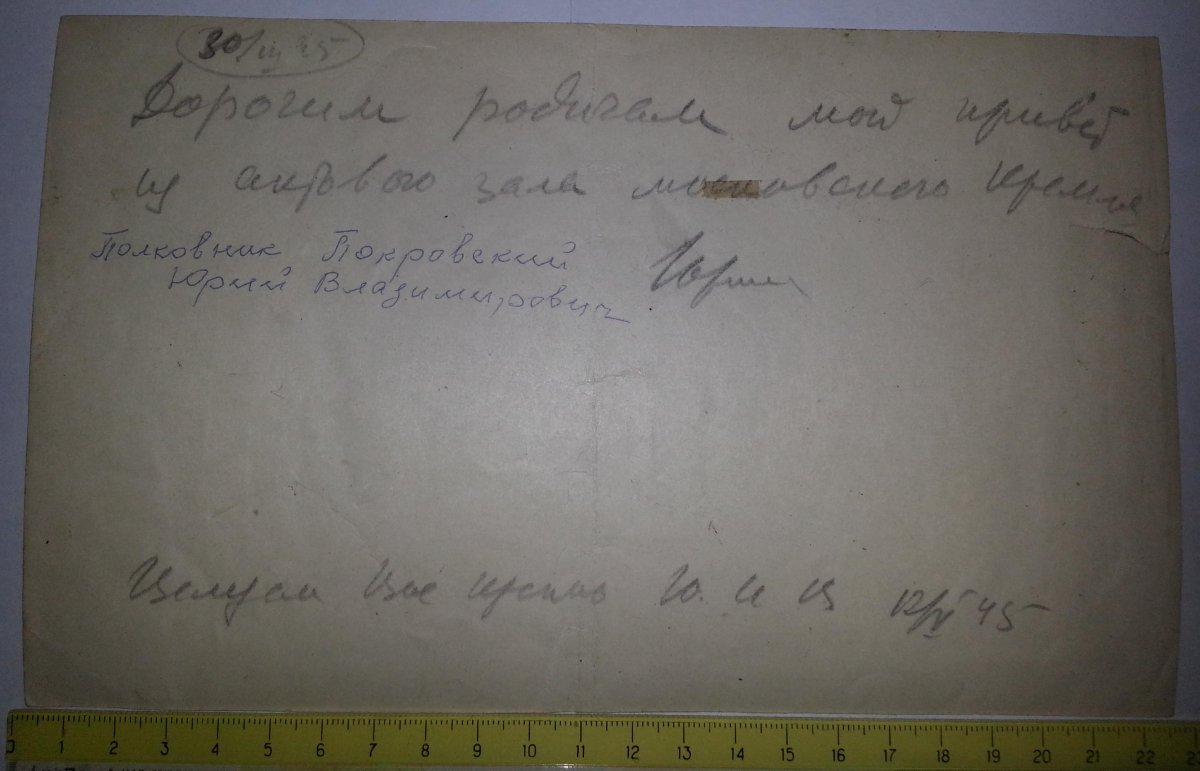 30/III 45
Дорогим родичам мой привет
из актового зала московского Кремля
Полковник Покровский
Юрий Владимирович
Юрий
Целуем Вас крепко Ю. и Ц 12/IV 45
0 1 2 3 4 5 6 7 8 9 10 11 12 13 14 15 16 17 18 19 20 21 22